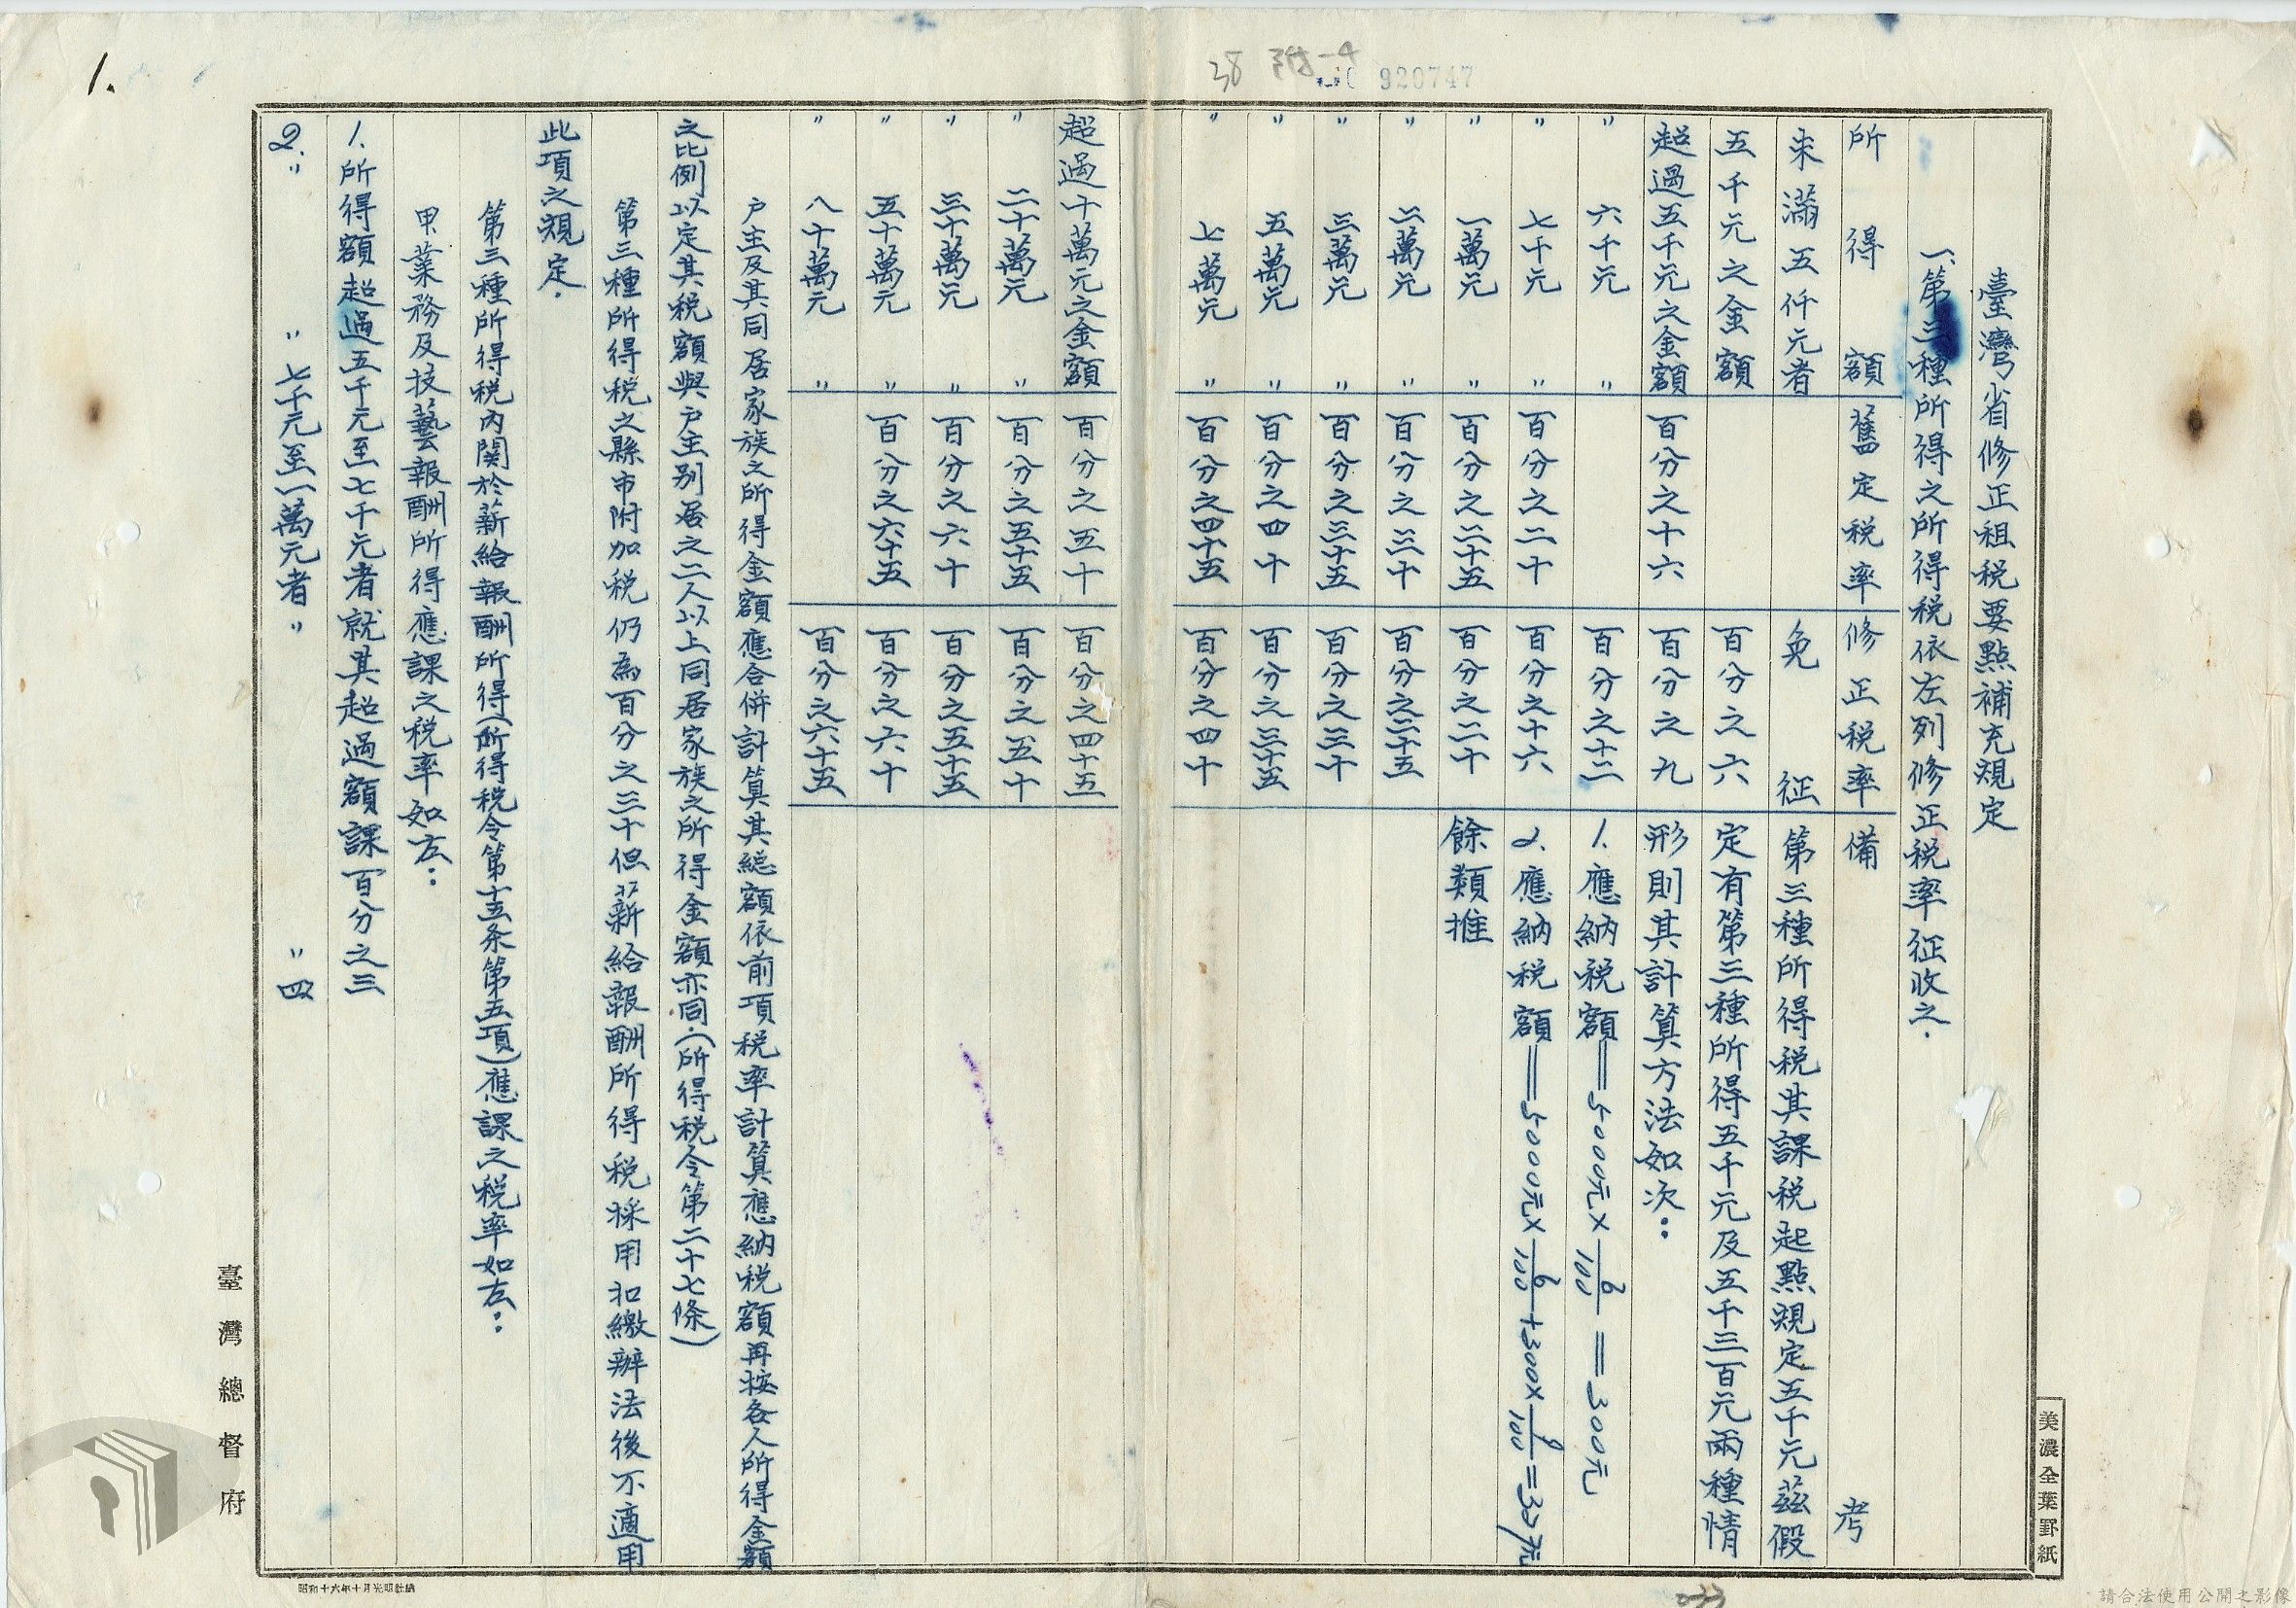 1.
38 附-4
920747
臺灣省修正租税要點補充規定
一、第三種所得之所得税依左列修正税率征收之.
所得額 舊定税率 修正税率 備考
未滿五仟元者 免征 第三種所得税其課税起點規定五千元茲假
五千元之金額 百分之六 定有第三種所得五千元及五千三百元兩種情
超過五千元之金額 百分之十六 百分之九 形則其計算方法如次:
〃六千元〃 百分之十二 1.應納税額=5000元×6/100=300元
〃七千元〃 百分之二十 百分之十六 2.應納税額=5000元×6/100+300×9/100=327元
〃一萬元〃 百分之二十五 百分之二十 餘類推
〃二萬元〃 百分之三十 百分之二十五
〃三萬元〃 百分之三十五 百分之三十
〃五萬元〃 百分之四十 百分之三十五
〃七萬元〃 百分之四十五 百分之四十
超過十萬元之金額 百分之五十 百分之四十五
〃二十萬元〃 百分之五十五 百分之五十
〃三十萬元〃 百分之六十 百分之五十五
〃五十萬元〃 百分之六十五 百分之六十
〃八十萬元〃 百分之六十五
户主及其同居家族之所得金額應合併計算其總額依前項税率計算應納税額再按各人所得金額
之比例以定其税額與户主别居之二人以上同居家族之所得金額亦同.(所得税令第二十七條)
第三種所得税之縣市附加税仍為百分之三十但薪給報酬所得税採用扣繳辦法後不適用
此項之規定.
第三種所得税内関於薪給報酬所得(所得税令第十五条第五項)應課之税率如左:
甲、業務及技藝報酬所得應課之税率如左:
1.所得額超過五千元至七千元者就其超過額課百分之三
2.〃 〃七千元至一萬元者〃 〃四
臺灣總督府
美濃全葉罫紙
昭和十六年十月光明社納
請合法使用公開之影像